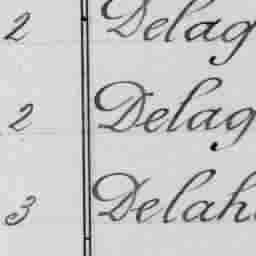 2 Delag
2 Delag
3 Delah